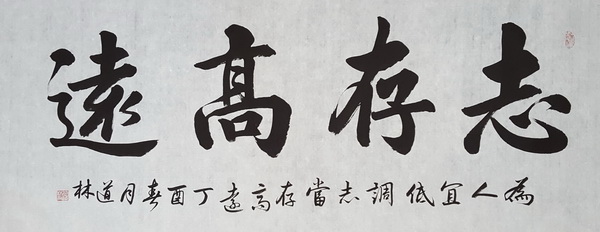 志存高遠
為人宜低調志當存高遠丁酉春月道林